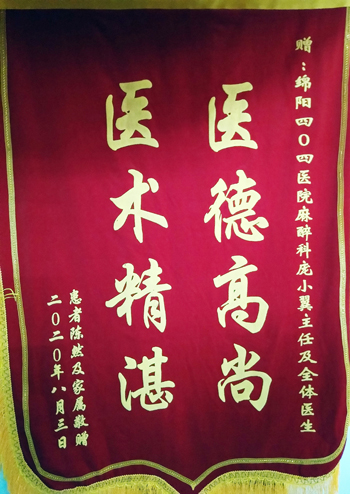 赠：绵阳四0四医院麻醉科庞小翼主任及全体医生
医德高尚
医术精湛
患者陈然及家属敬赠
二0二0年八月三日